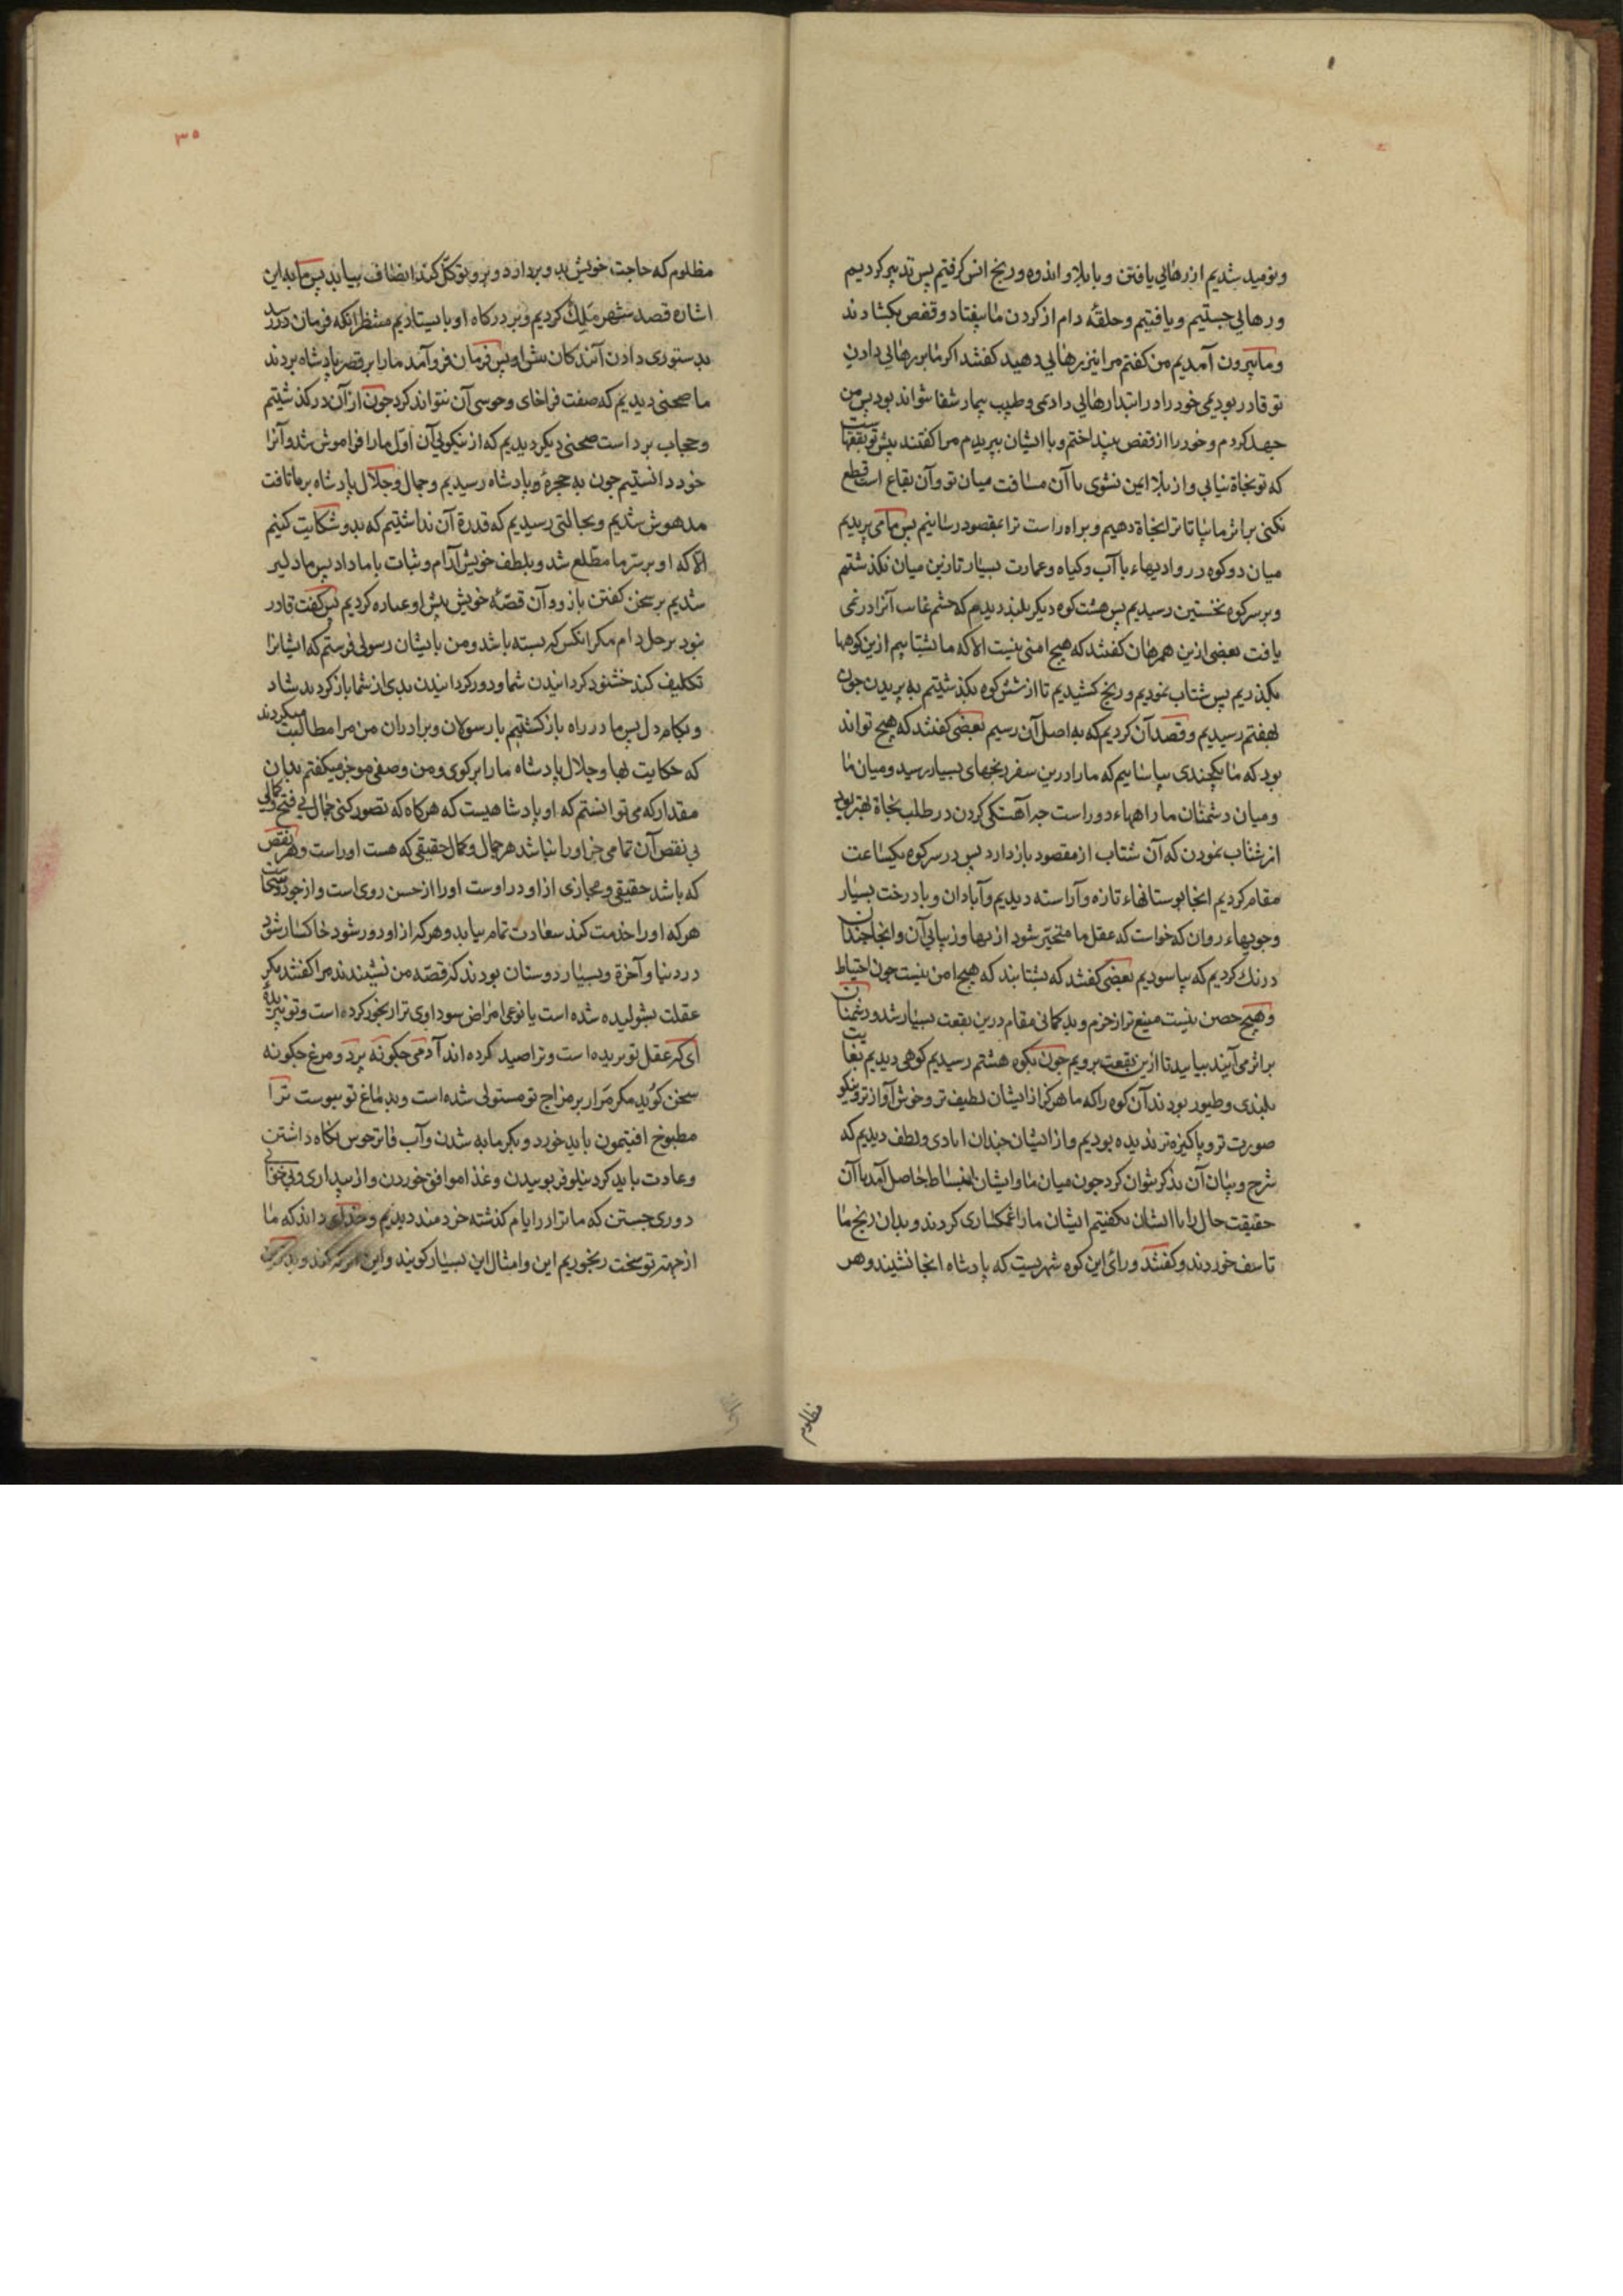 ونومید شدیم از رهایی یافتن و با بلا و اندوه و رنج انس گرفتیم پس تدبیر کردیم
و رهایی جستیم و یافتیم و حلقهٔ دام از گردن ما بیفتاد و قفص بگشادند
و ما بیرون آمدیم من گفتم مرا نیز رهایی دهید گفتند اگر ما بر رهایی دادن
تو قادر بودیمی خود را در ابتدا رهایی دادیمی و طبیب بیمار شفا نتواند بود پس من
جهد کردم و خود را از قفص بینداختم و با ایشان بپریدم مرا گفتند پیش تو بقعتهاست
که تو نجاة نیابی و از بلا ایمن نشوی تا آن مسافت میان تو و آن بقاع است قطع
نکنی بر اثر ما بیا تا ترا نجاة دهیم و براه راست ترا بمقصود رسانیم پس ما می پریدیم
میان دو کوه در وادیهاء با آب و گیاه و عمارت بسیار تا زین میان بگذشتم
و بر سر کوه نخستین رسیدیم پس هشت کوه دیگر بلند دیدیم که چشم غایب آنرا در نمی
یافت بعضی ازین همرهان گفتند که هیچ امنی نیست الا که ما بشتابیم ازین کوهها
بگذریم پس شتاب نمودیم و رنج کشیدیم تا از شش کوه بگذشتیم به پریدن چون
بهفتم رسیدیم و قصد آن کردیم که به اصل آن رسیم بعضی گفتند که هیچ تواند
بود که ما یکچندی بیاساییم که ما را درین سفر رنجهای بسیار رسید و میان ما
و میان دشمنان ما راههاء دور است چه آهستگی کردن در طلب نجاة بهتر بود
از شتاب نمودن که آن شتاب از مقصود باز دارد پس در سر کوه یکساعت
مقام کردیم آنجا بوستانهاء تازه و آراسته دیدیم و آبادان و با درخت بسیار
و جویهاء روان که خواست که عقل ما متحیر شود از بها و زیبایی آن و آنجا چندان
درنگ کردیم که بیاسودیم بعضی گفتند که بشتابند که هیچ امن نیست چون احتیاط
و هیچ حصن نیست منیع تر از حزم و بدگمانی مقام درین بقعت بسیار شد و دشمنان
بر اثر می آیند بیایید تا ازین بقعت برویم چون بکوه هشتم رسیدیم کوهی دیدیم بغایت
بلندی و طیور بودند آن کوه را که ما هرگز از ایشان لطیف تر و خوش آواز تر و نیکو
صورت تر و پاکیزه تر ندیده بودیم و از ایشان چندان ایادی و لطف دیدیم که
شرح و بیان آن بذکر نتوان کرد چون میان ما و ایشان انبساط حاصل آمد با آن
حقیقت حال را با ایشان بگفتیم ایشان ما را غمگساری کردند و بدان رنج ما
تاسف خوردند و گفتند ورای این کوه شهریست که پادشاه آنجا نشیند و هر
مظلوم
۳۵
مظلوم که حاجت خویش بدو بردارد و برو توکل کند انصاف بیابد پس ما به این
اشاره قصد شهر ملک کردیم و بر درگاه او بایستادیم منتظر آنکه فرمان در رسد
بدستوری دادن آیندگان پس فرمان فرو آمد ما را بر قصر پادشاه بردند
ما صحنی دیدیم که صفت فراخای و خوشی آن نتواند کرد چون از آن درگذشتیم
و حجاب برداشت صحنی دیگر دیدیم که از نیکویی آن اول ما را فراموش شد و آنرا
خورد دانستیم چون به حجرهٔ پادشاه رسیدیم و جمال و جلال پادشاه بر ما تافت
مدهوش شدیم و بحالتی رسیدیم که قدرة آن نداشتیم که بدو شکایت کنیم
الا که او بر سر ما مطلع شد و بلطف خویش آرام و ثبات با ما داد پس ما دلیر
شدیم بر سخن گفتن باز و آن قصهٔ خویش پیش او عباره کردیم پس گفت قادر
نبود بر حل دام مگر آنکس که بسته باشد و من با ایشان رسولی فرستم که ایشانرا
تکلیف کند خشنود گردانیدن شما و دور گردانیدن بدی از شما باز گردید شاد
و بکام دل پس ما در راه بازگشتیم با رسولان و برادران من مرا مطالبت میکردند
که حکایت بها و جلال پادشاه ما را بر گوی و من وصفی موجز میگفتم بدان
مقدار که می توانستم که او پادشاهیست که هر گاه که تصور کنی جمالی بی قبح و کمالی
بی نقص آن تمامی جز او را نباشد هر جمال و کمال حقیقی که هست او راست و هر نقص
که باشد حقیقی و مجازی از او دور است او را از حسن روی است و از جود دست سخا
هر که او را خدمت کند سعادت تمام بیابد و هر که از او دور شود خاکسار شود
در دنیا و آخرة و بسیار دوستان بودند که قصه من شنیدند مرا گفتند مگر
عقلت بشولیده شده است یا نوعی امراض سوداوی ترا رنجور کرده است و تو نپریدهٔ
ای که عقل تو پریده است و ترا صید کرده اند آدمی چگونه پرد و مرغ چگونه
سخن گوید مگر مرار بر مزاج تو مستولی شده است و بدماغ تو پیوست ترا
مطبوخ افتیمون باید خورد و بگرمابه شدن و آب فاتر خوش نگاه داشتن
و عادت باید کرد نیلوفر بوییدن و غذا موافق خوردن و از بیداری و بی خوابی
دوری جستن که ما ترا در ایام گذشته خردمند دیدیم و خدای داند که ما
از جهة تو سخت رنجوریم این و امثال این بسیار گویند و این